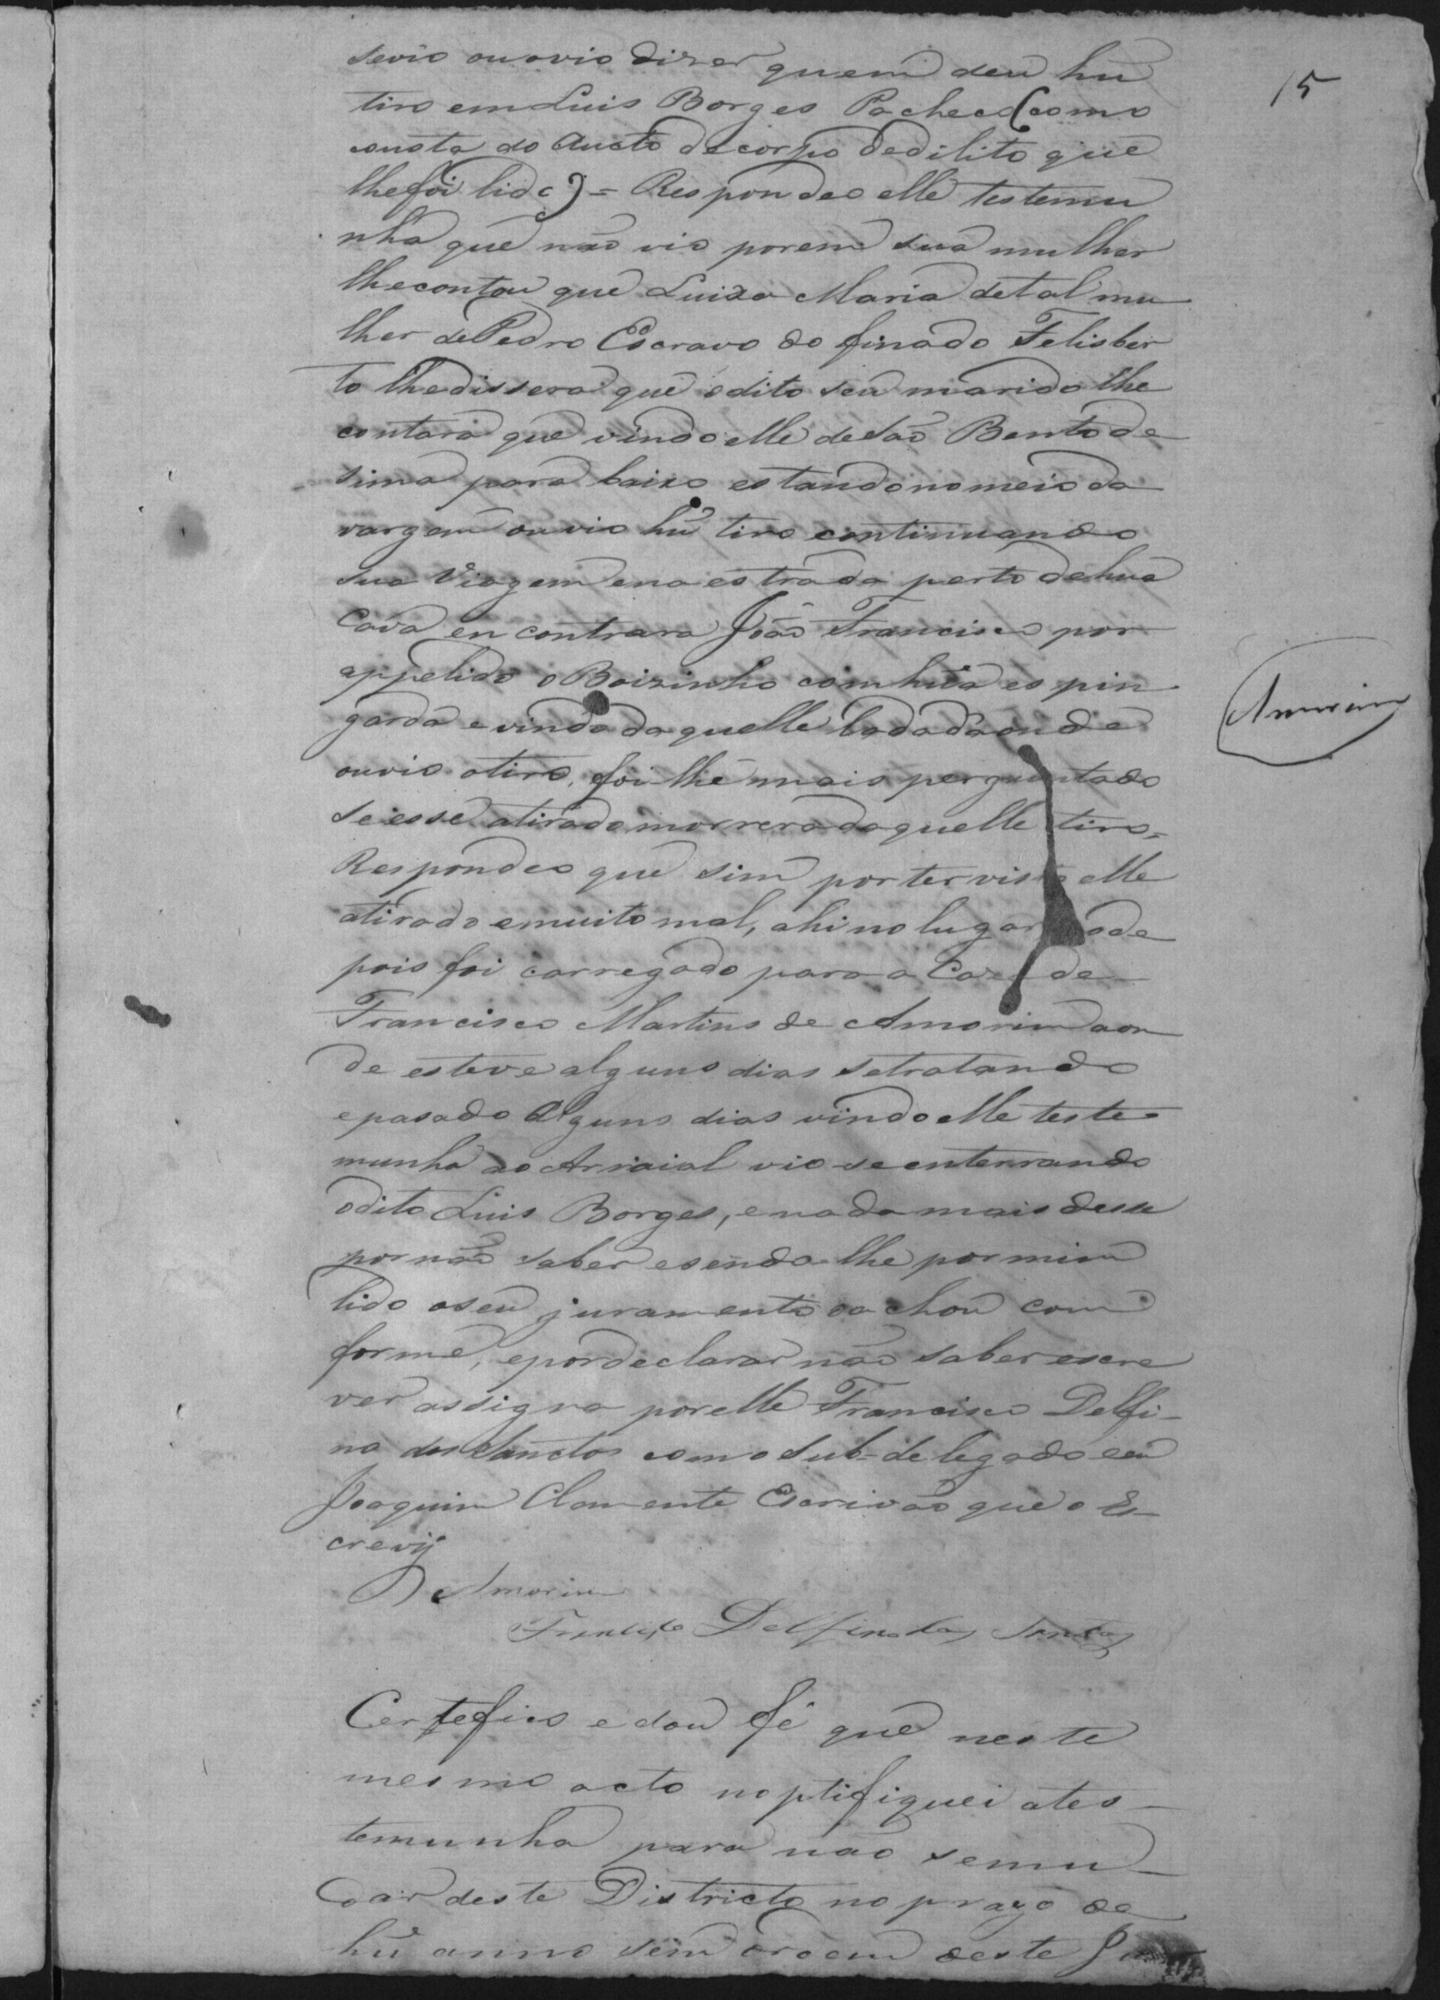 15
sevio ouovio dizer quem deu hũ
tiro em Luis Borges Pacheco (como
consta do Aucto de corpo dedilito que
lhefoi lido) = Respondeo elle testemu
nha que não vio porem sua mulher
lhecontou que Luiza Maria detal mu
lher dePedro Escravo do finado Felisber
to lhedissera que odito seu marido lhe
contara que vindo elle desaõ Bento de
sima para baixo estandonomeio da
vargem ouvio hũ tiro continuando
sua Viagem enaestrada perto dehua
Cava encontrara João Francisco por
appelido o Boizinho comhũa espin
garda evindo daquelle lado daonde
ouvio otiro, foi-lhe mais perguntado
seesse atirado morrera daquelle tiro=
Respondeo que sim porter visto elle
atirado emuito mal, ahi no lugar ode
pois foi carregado para a Caza de
Francisco Martins de Amorim aon
de esteve alguns dias setratando
epasado Alguns dias vindo elle teste
munha ao Arraial vio-seenterrando
odito Luis Borges, enada mais disse
pornão saber esendo-lhe pormim
lido oseu juramento oachou com
forme, epordeclarar não saber escre
ver assigna porelle Francisco Delfi-
no dos Sanctos como Sub-delegado eeu
Joaquim Clemente Escrivão que o Es-
crevij
Amorim
Amorim
Francisco Delfino dos Santos
Certefico e dou fé que neste
mesmo acto noptifiquei ates-
temunha para não semu-
dar deste Districto no prazo de
hũ anno sem ordem deste